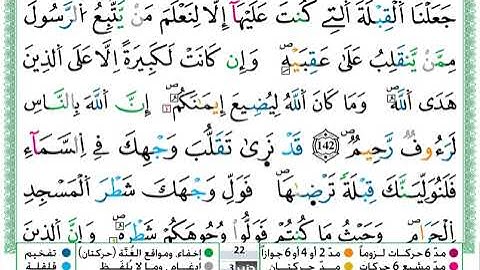 جَعَلْنَا ٱلْقِبْلَةَ ٱلَّتِے كُنتَ عَلَيْهَآ إِلَّا لِنَعْلَمَ مَنْ يَّتَّبِعُ ٱلرَّسُولَ
مِمَّنْ يَّنقَلِبُ عَلَىٰ عَقِبَيْهِۖ وَإِن كَانَتْ لَكَبِيرَةً إِلَّا عَلَى ٱلَّذِينَ
هَدَى ٱللَّهُۖ وَمَا كَانَ ٱللَّهُ لِيُضِيعَ إِيمَٰنَكُمْۖ إِنَّ ٱللَّهَ بِالنَّاسِ
لَرَءُوفٌ رَّحِيمٌۖ 142 قَدْ نَرَىٰ تَقَلُّبَ وَجْهِكَ فِے ٱلسَّمَآءِ
فَلَنُوَلِّيَنَّكَ قِبْلَةً تَرْضَىٰهَاۖ فَوَلِّ وَجْهَكَ شَطْرَ ٱلْمَسْجِدِ
ٱلْحَرَامِۖ وَحَيْثُ مَا كُنتُمْ فَوَلُّوا۟ وُجُوهَكُمْ شَطْرَهُۥۖ وَإِنَّ ٱلَّذِينَ
مدّ 6 حركات لزوماً مدّ 2 أو 4 أو 6 جوازاً 22 إخفاء، ومواقع الغُنَّة (حركتان) تفخيم
مدّ مشبع 6 حركات مدّ حركتان إدغام، وما لا يُلفَظ قلقلة